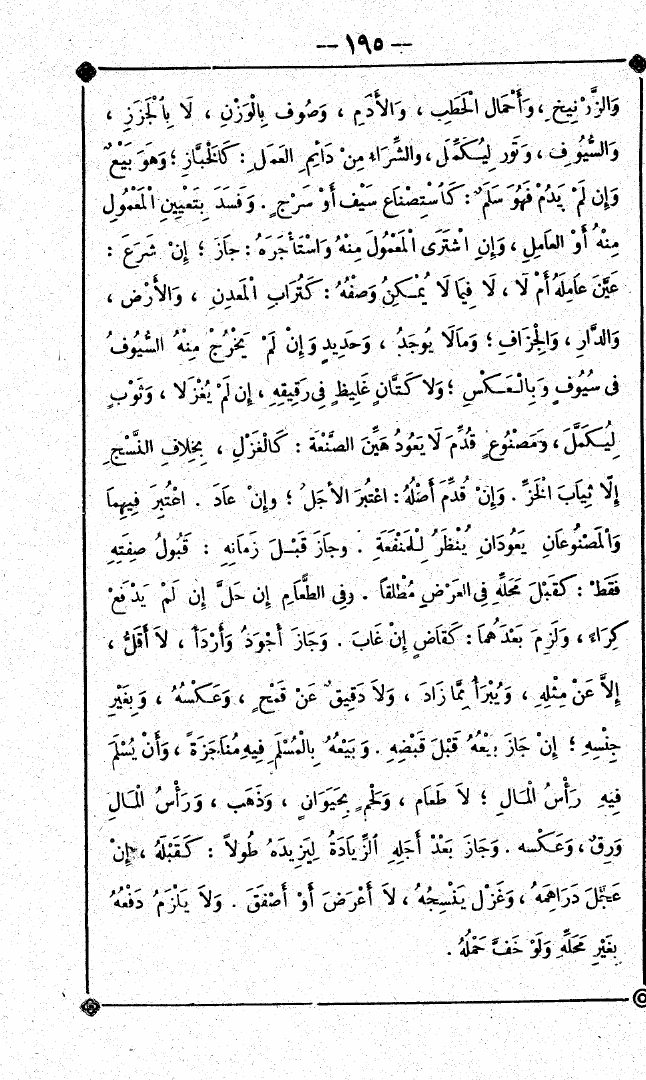 — ١٩٥ —
وَالزَّرْنِيخِ ، وَأَحْمَالِ الْحَطَبِ ، وَالأَدَمِ ، وَصُوفٍ بِالْوَزْنِ ، لَا بِالْجَزَزِ ،
وَالسُّيُوفِ ، وَتَوْرٍ لِيُكَمَّلَ ، وَالشِّرَاءُ مِنْ دَائِمِ العَمَلِ : كَالْخَبَّازِ ؛ وَهُوَ بَيْعٌ
وَإِن لَمْ يَدُمْ فَهُوَ سَلَمٌ : كَاسْتِصْنَاعِ سَيْفٍ أَوْ سَرْجٍ . وَفَسَدَ بِتَعْيِينِ الْمَعْمُولِ
مِنْهُ أَوْ العَامِلِ ، وَإِنِ اشْتَرَى الْمَعْمُولَ مِنْهُ وَاسْتَأْجَرَهُ : جَازَ ؛ إِنْ شَرَعَ :
عَيَّنَ عَامِلَهُ أَمْ لَا ، لَا فِيمَا لَا يُمْكِنُ وَصْفُهُ : كَتُرَابِ الْمَعْدِنِ ، وَالأَرْضِ ،
وَالدَّارِ ، وَالْجِزَافِ ؛ وَمَالَا يُوجَدُ ، وَحَدِيدٍ وَإِنْ لَمْ يَخْرُجْ مِنْهُ السُّيُوفُ
فِى سُيُوفٍ وَبِالْعَكْسِ ؛ وَلَا كَتَّانٍ غَلِيظٍ فِى رَقِيقِهِ ، إِن لَمْ يُغْزَلَا ، وَثَوْبٍ
لِيُكَمَّلَ ، وَمَصْنُوعٍ قُدِّمَ لَا يَعُودُ هَيِّنَ الصَّنْعَةِ : كَالْغَزْلِ ، بِخِلَافِ النَّسْجِ
إِلَّا ثِيَابَ الْخَزِّ . وَإِنْ قُدِّمَ أَصْلُهُ : اعْتُبِرَ الأَجَلُ ؛ وإنْ عَادَ . اعْتُبِرَ فِيهِمَا
وَالْمَصْنُوعَانِ يَعُودَانِ يُنْظَرُ لِلْمَنْفَعَةِ . وجَازَ قَبْلَ زَمَانِهِ : قَبُولُ صِفَتِهِ
فَقَطْ : كَقَبْلَ مَحَلِّهِ فِى العَرْضِ مُطْلَقاً . وفِى الطَّعَامِ إِن حَلَّ إِن لَمْ يَدْفَعْ
كِرَاءً ، وَلَزِمَ بَعْدَهُمَا : كَقَاضٍ إِنْ غَابَ . وَجَازَ أَجْوَدُ وَأَرْدَأُ ، لَا أَقَلُّ ،
إِلاَّ عَنْ مِثْلِهِ ، وَيُبْرَأُ مِمَّا زَادَ ، وَلَا دَقِيقٌ عَنْ قَمْحٍ ، وَعَكْسُهُ ، وَبِغَيْرِ
جِنْسِهِ ؛ إِنْ جَازَ بَيْعُهُ قَبْلَ قَبْضِهِ . وَبَيْعُهُ بِالْمُسْلَمِ فِيهِ مُنَاجَزَةً ، وَأَنْ يُسْلَمَ
فِيهِ رَأْسُ الْمَالِ ؛ لَا طَعَامٍ ، وَلَحْمٍ بِحَيَوَانٍ ، وَذَهَبٍ ، وَرَأْسُ الْمَالِ
وَرِقٌ ، وَعَكْسه . وَجَازَ بَعْدَ أَجَلِهِ الزِّيَادَةُ لِيَزِيدَهُ طُولاً : كَقَبْلَهُ ، إِنْ
عَجَّلَ دَرَاهِمَهُ ، وَغَزْلٍ يَنْسِجُهُ ، لاَ أَعْرَضَ أَوْ أَصْفَقَ . وَلاَ يَلْزَمُ دَفْعُهُ
بِغَيْرِ مَحَلِّهِ وَلَوْ خَفَّ حَمْلُهُ .